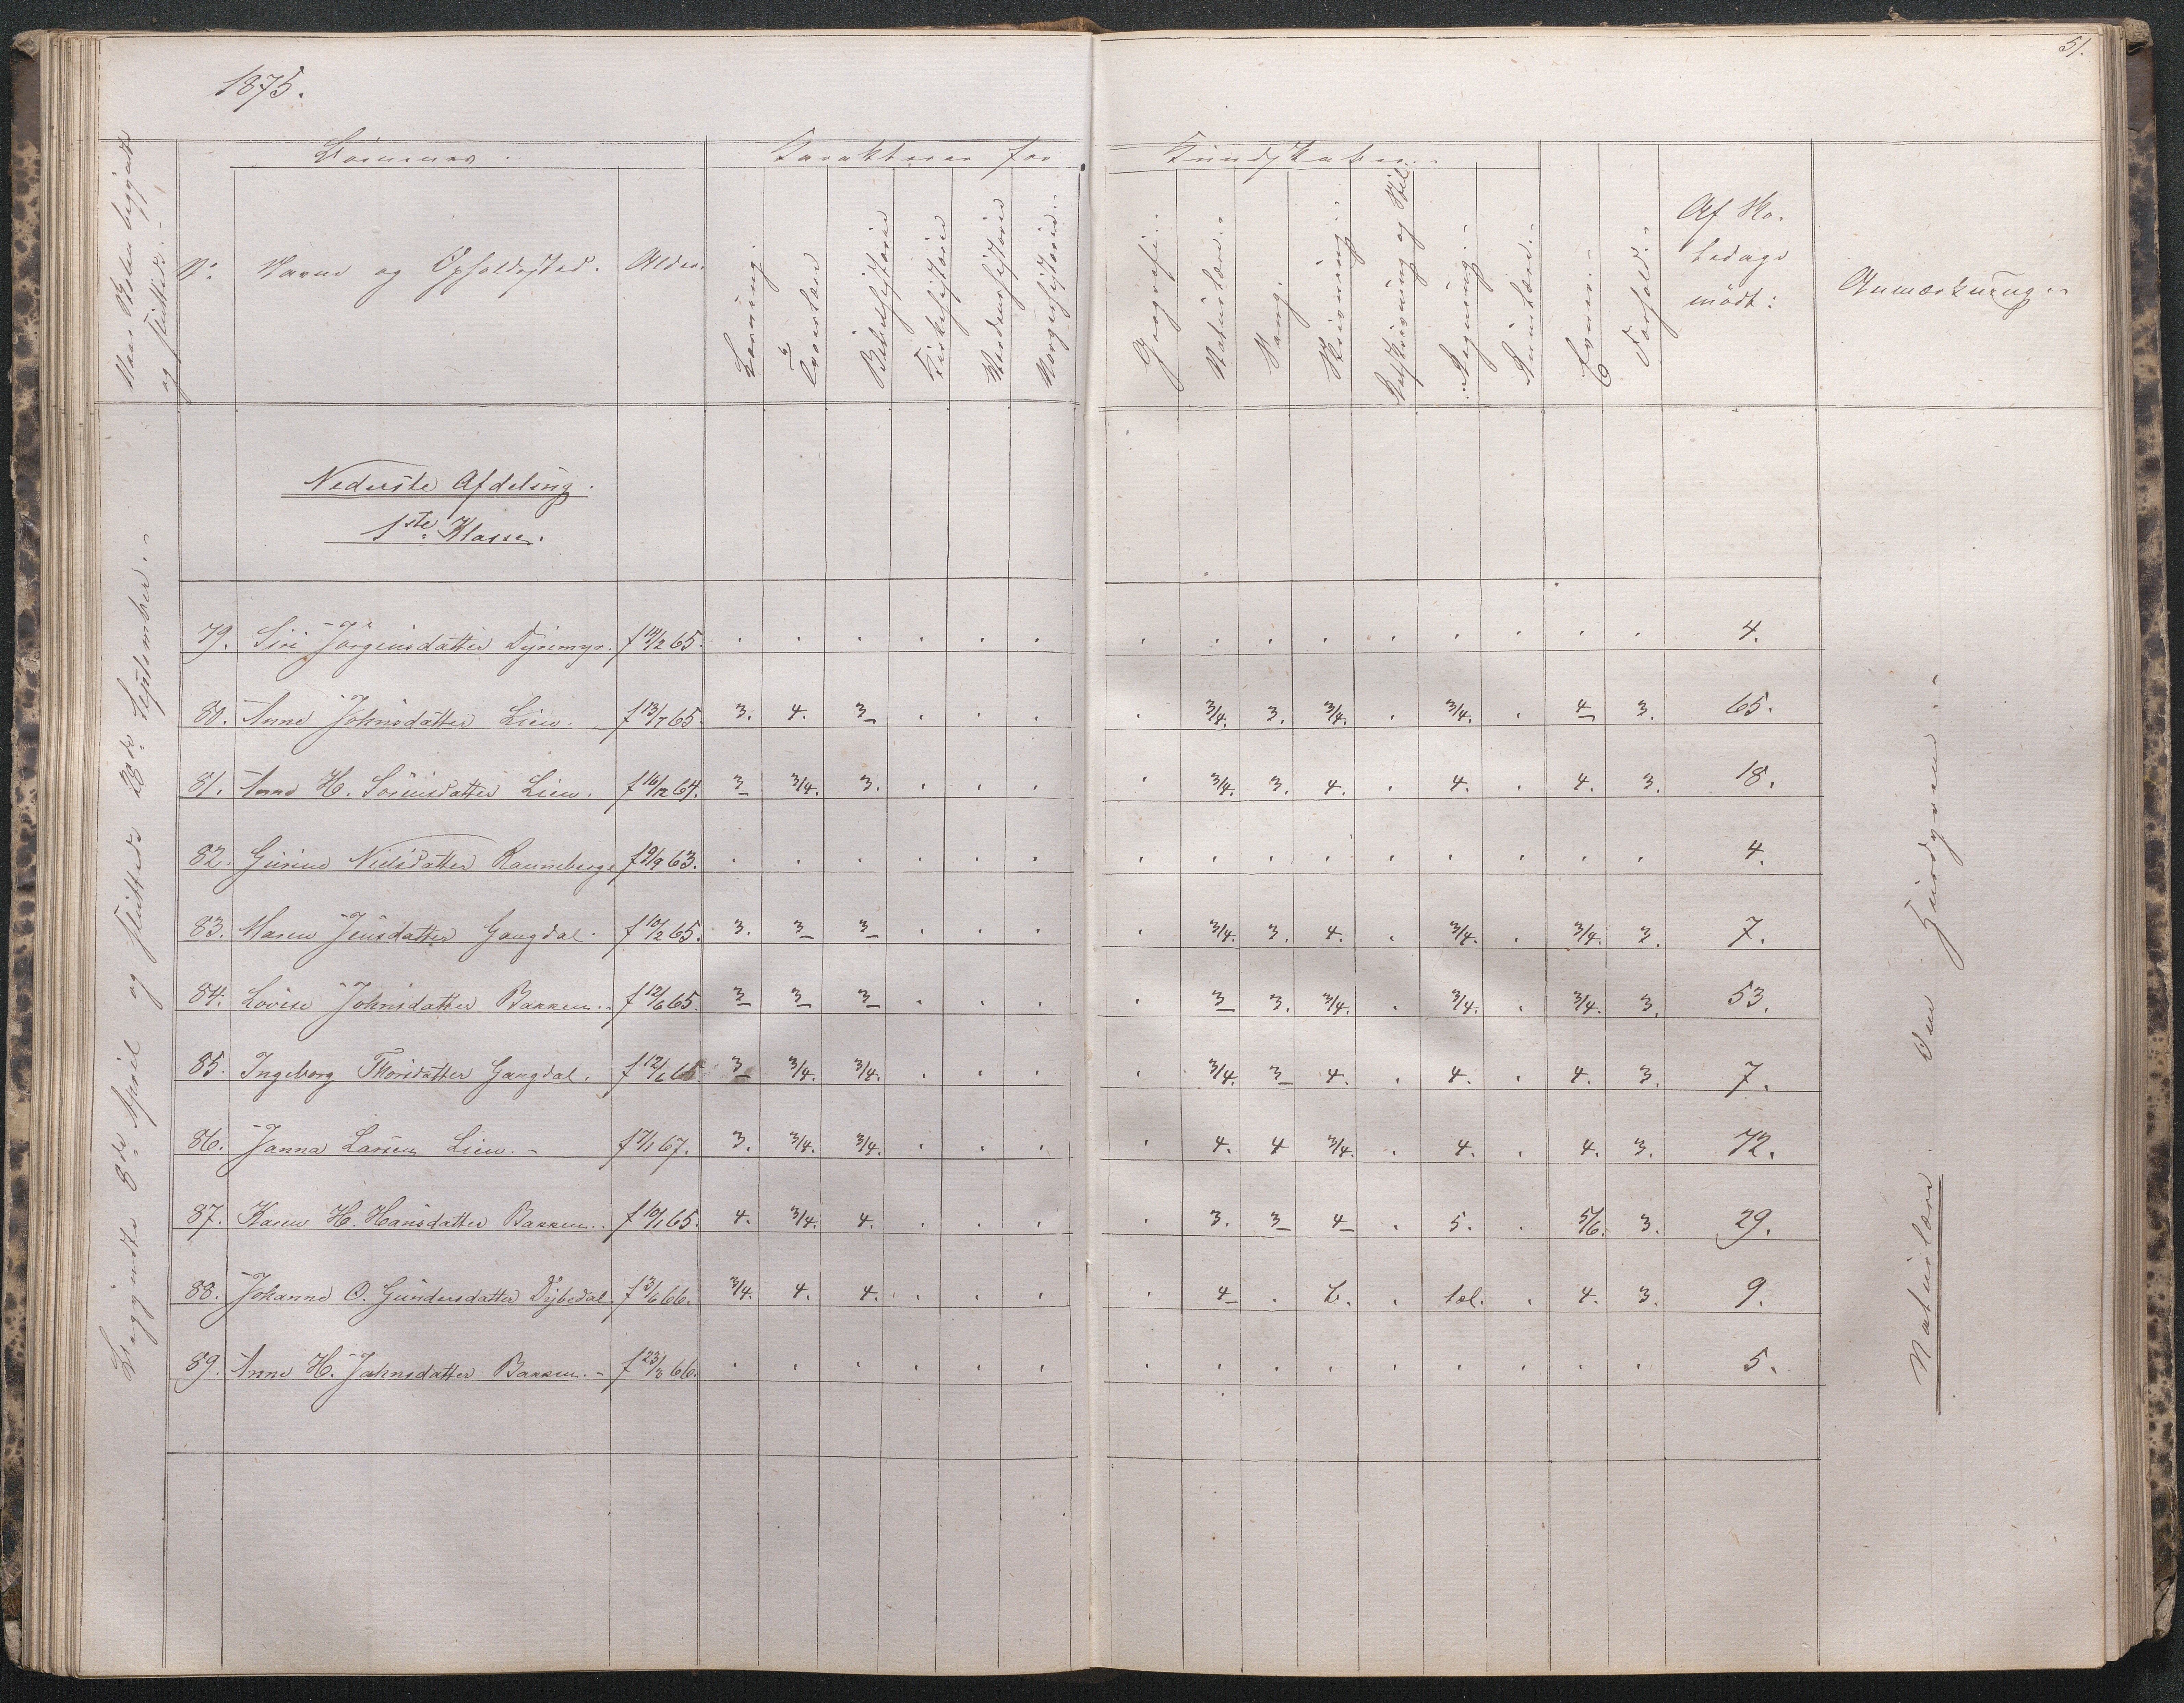 1875.
51.
Naar Skolen begyndte
og sluttede.-
Börnenes.
Karakterer for
Kundskaber.-
No.
Navne og Opholdssted.
Alder.
Læsning.
Troeslære
Bibelhistorie
Kirkehistorie
Verdenshistorie
Norgeshistorie.-
Geografi.-
Naturlære.-
Sang.
Skrivning.-
Retskrivning og Stil.
Regning.-
Evner.-
Forhold.-
Af Sko-
ledage
mödt:
Anmærkning.-
Nederste Afdeling.
1ste Klasse.
Begyndte 8de April og sluttede 28de September.-
79. Siri Jörgensdatter Dyremyr. f 14/2 65. 4.
80. Anne Johnsdatter Lien. f 13/7 65. 3. 4. 3 3/4. 3. 3/4. 3/4. 4 3. 65.
81. Anne H. Sörensdatter Lien. f 16/12 64. 3 3/4. 3. 3/4. 3. 4. 4. 4. 3. 18.
82. Gurine Nielsdatter Ranneberge f 9/9 63. 4.
83. Maren Jensdatter Gangdal. f 10/2 65. 3. 3 3 3/4. 3. 4. 3/4. 3/4. 3. 7.
84. Lovise Johnsdatter Bakken.- f 12/6 65. 3 3 3 3 3. 3/4. 3/4. 3/4. 3. 53.
85. Ingeborg Thorsdatter Gangdal. f 12/1 66 3 3/4. 3/4. 3/4. 3 4. 4. 4. 3. 7.
86. Janna Larsen Lien.- f 7/1 67. 3. 3/4. 3/4. 4. 4 3/4. 4. 4. 3. 72.
87. Karen H. Hansdatter Bakken.. f 10/1 65. 4. 3/4. 4. 3. 3 4 5. 5/6. 3. 29.
88. Johanne O. Gundersdatter Dybedal f 3/6 66. 3/4. 4. 4. 4 b. tæl. 4. 3. 9.
89. Anne H. Jahnsdatter Bakken.- f 23/3 66. 5.
Naturlære. Om Husdyrene.-